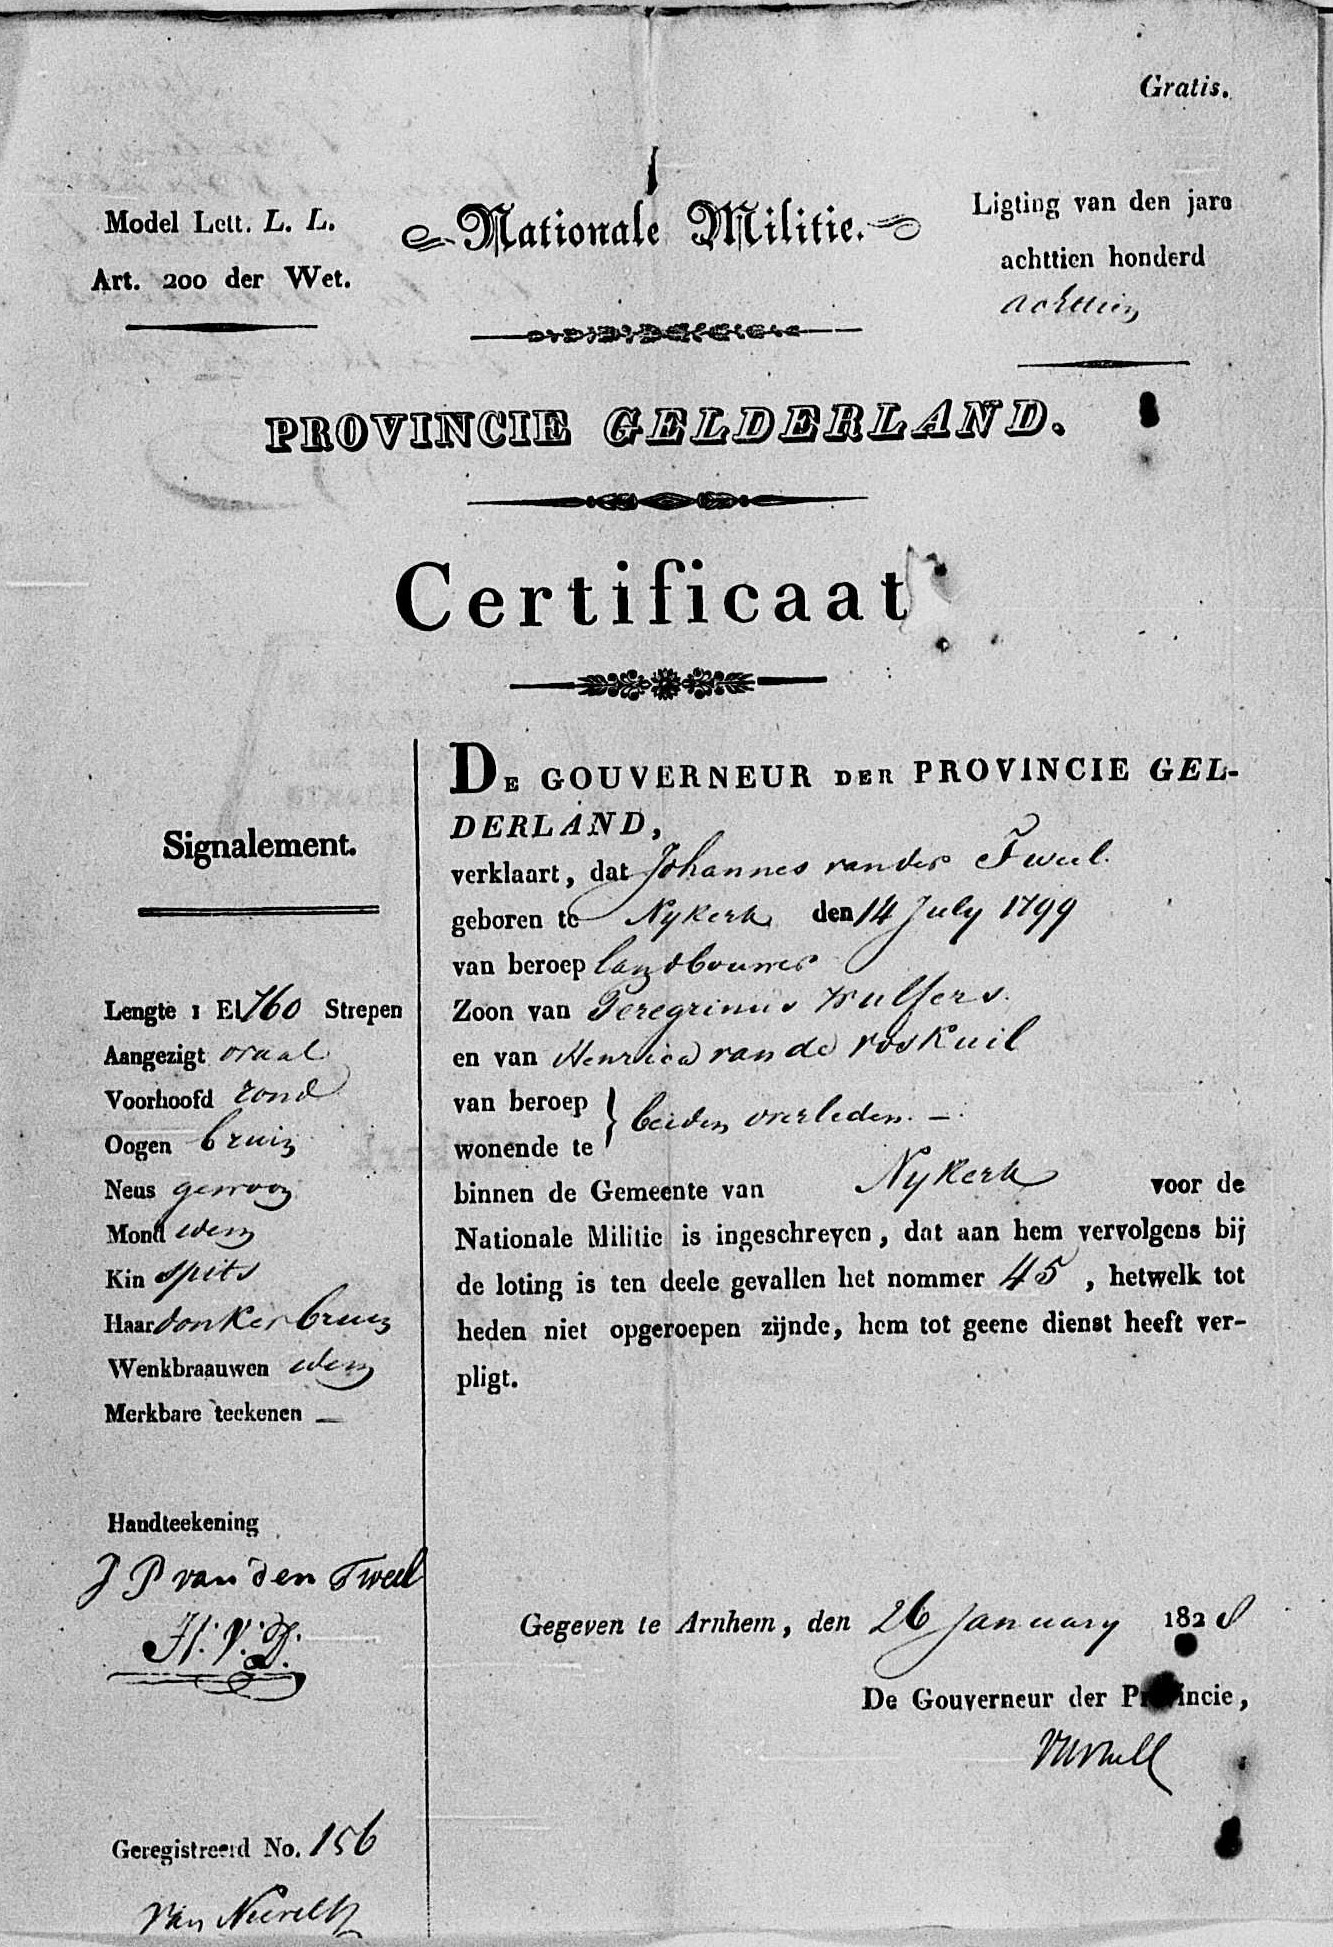 Gratis.
Model Lett. L. L.
Art. 200 der Wet.
Nationale Militie.
Ligting van den jare
achttien honderd
achttien
PROVINCIE GELDERLAND.
Certificaat
Signalement.
Lengte 1 El 760 Strepen
Aangezigt ovaal
Voorhoofd rond
Oogen bruin
Neus gewoon
Mond idem
Kin spits
Haar donker bruin
Wenkbraauwen idem
Merkbare teekenen —
Handteekening
J P van den Tweel
Geregistreerd No. 156
DE GOUVERNEUR DER PROVINCIE GEL-
DERLAND,
verklaart, dat Johannes van der Tweel
geboren te Nykerk den 14 July 1799
van beroep landbouwer
Zoon van Peregrinus Wulfers
en van Henrica van de Roskuil
van beroep } beiden overleden. —
wonende te
binnen de Gemeente van Nykerk voor de
Nationale Militie is ingeschreven, dat aan hem vervolgens bij
de loting is ten deele gevallen het nommer 45, hetwelk tot
heden niet opgeroepen zijnde, hem tot geene dienst heeft ver-
pligt.
Gegeven te Arnhem, den 26 January 1828
De Gouverneur der Provincie,